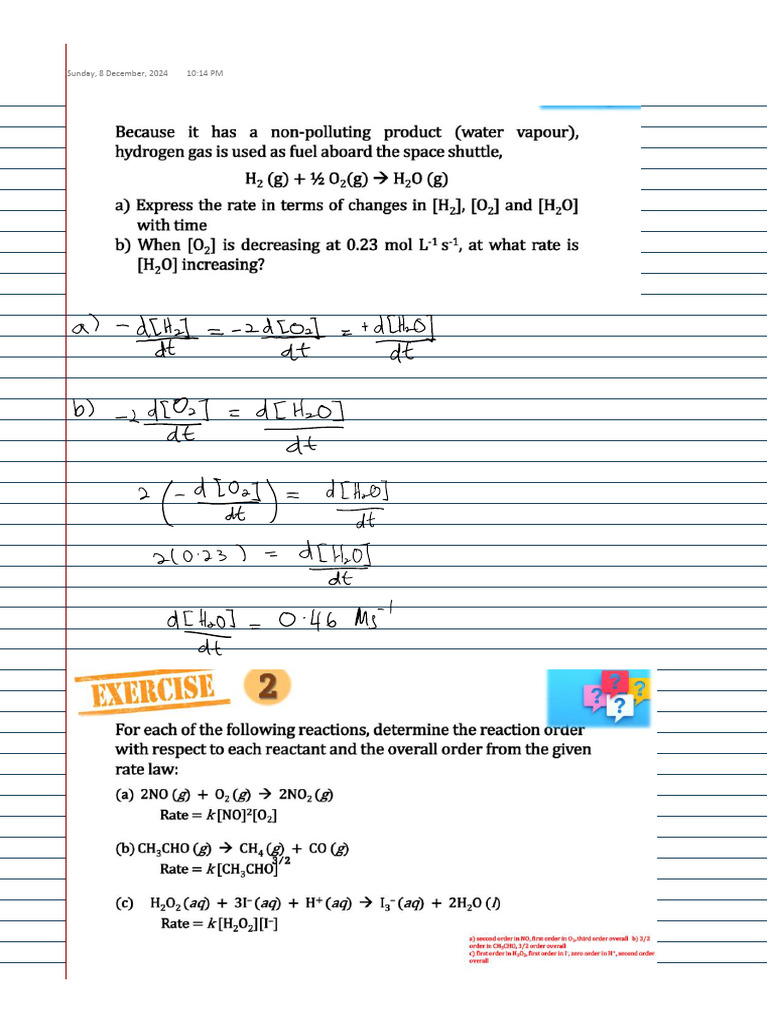 Sunday, 8 December, 2024 10:14 PM
Because it has a non-polluting product (water vapour),
hydrogen gas is used as fuel aboard the space shuttle,
H₂ (g) + ½ O₂(g) → H₂O (g)
a) Express the rate in terms of changes in [H₂], [O₂] and [H₂O]
with time
b) When [O₂] is decreasing at 0.23 mol L⁻¹ s⁻¹, at what rate is
[H₂O] increasing?
a) -d[H₂]/dt = -2d[O₂]/dt = +d[H₂O]/dt
b) -2 d[O₂]/dt = d[H₂O]/dt
2 (-d[O₂]/dt) = d[H₂O]/dt
2(0.23) = d[H₂O]/dt
d[H₂O]/dt = 0.46 Ms⁻¹
EXERCISE 2
? ? ? ?
For each of the following reactions, determine the reaction order
with respect to each reactant and the overall order from the given
rate law:
(a) 2NO (g) + O₂ (g) → 2NO₂ (g)
Rate = k[NO]²[O₂]
(b) CH₃CHO (g) → CH₄ (g) + CO (g)
Rate = k[CH₃CHO]³/²
(c) H₂O₂ (aq) + 3I⁻ (aq) + H⁺ (aq) → I₃⁻ (aq) + 2H₂O (l)
Rate = k[H₂O₂][I⁻]
a) second order in NO, first order in O₂, third order overall b) 3/2
order in CH₃CHO, 3/2 order overall
c) first order in H₂O₂, first order in I⁻, zero order in H⁺, second order
overall